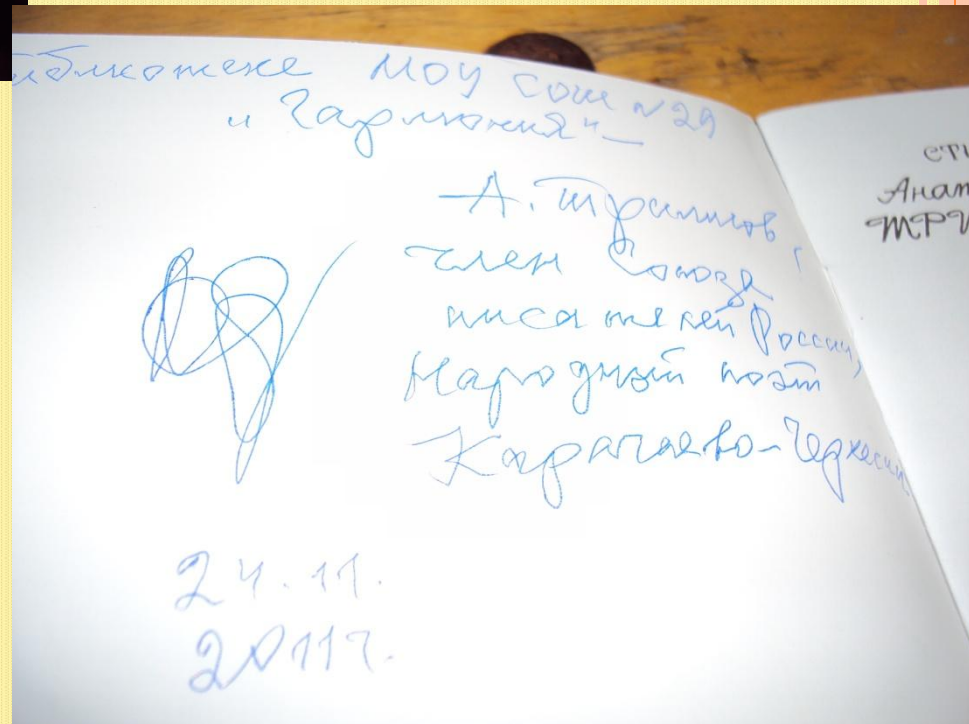 иблиотеке МОУ СОШ №29
"Гармония" —
А. Трилисов,
член Союза
писателей России,
Народный поэт
Карачаево-Черкесии
24.11.
2011г.
СТИ
Анат
ТРИ